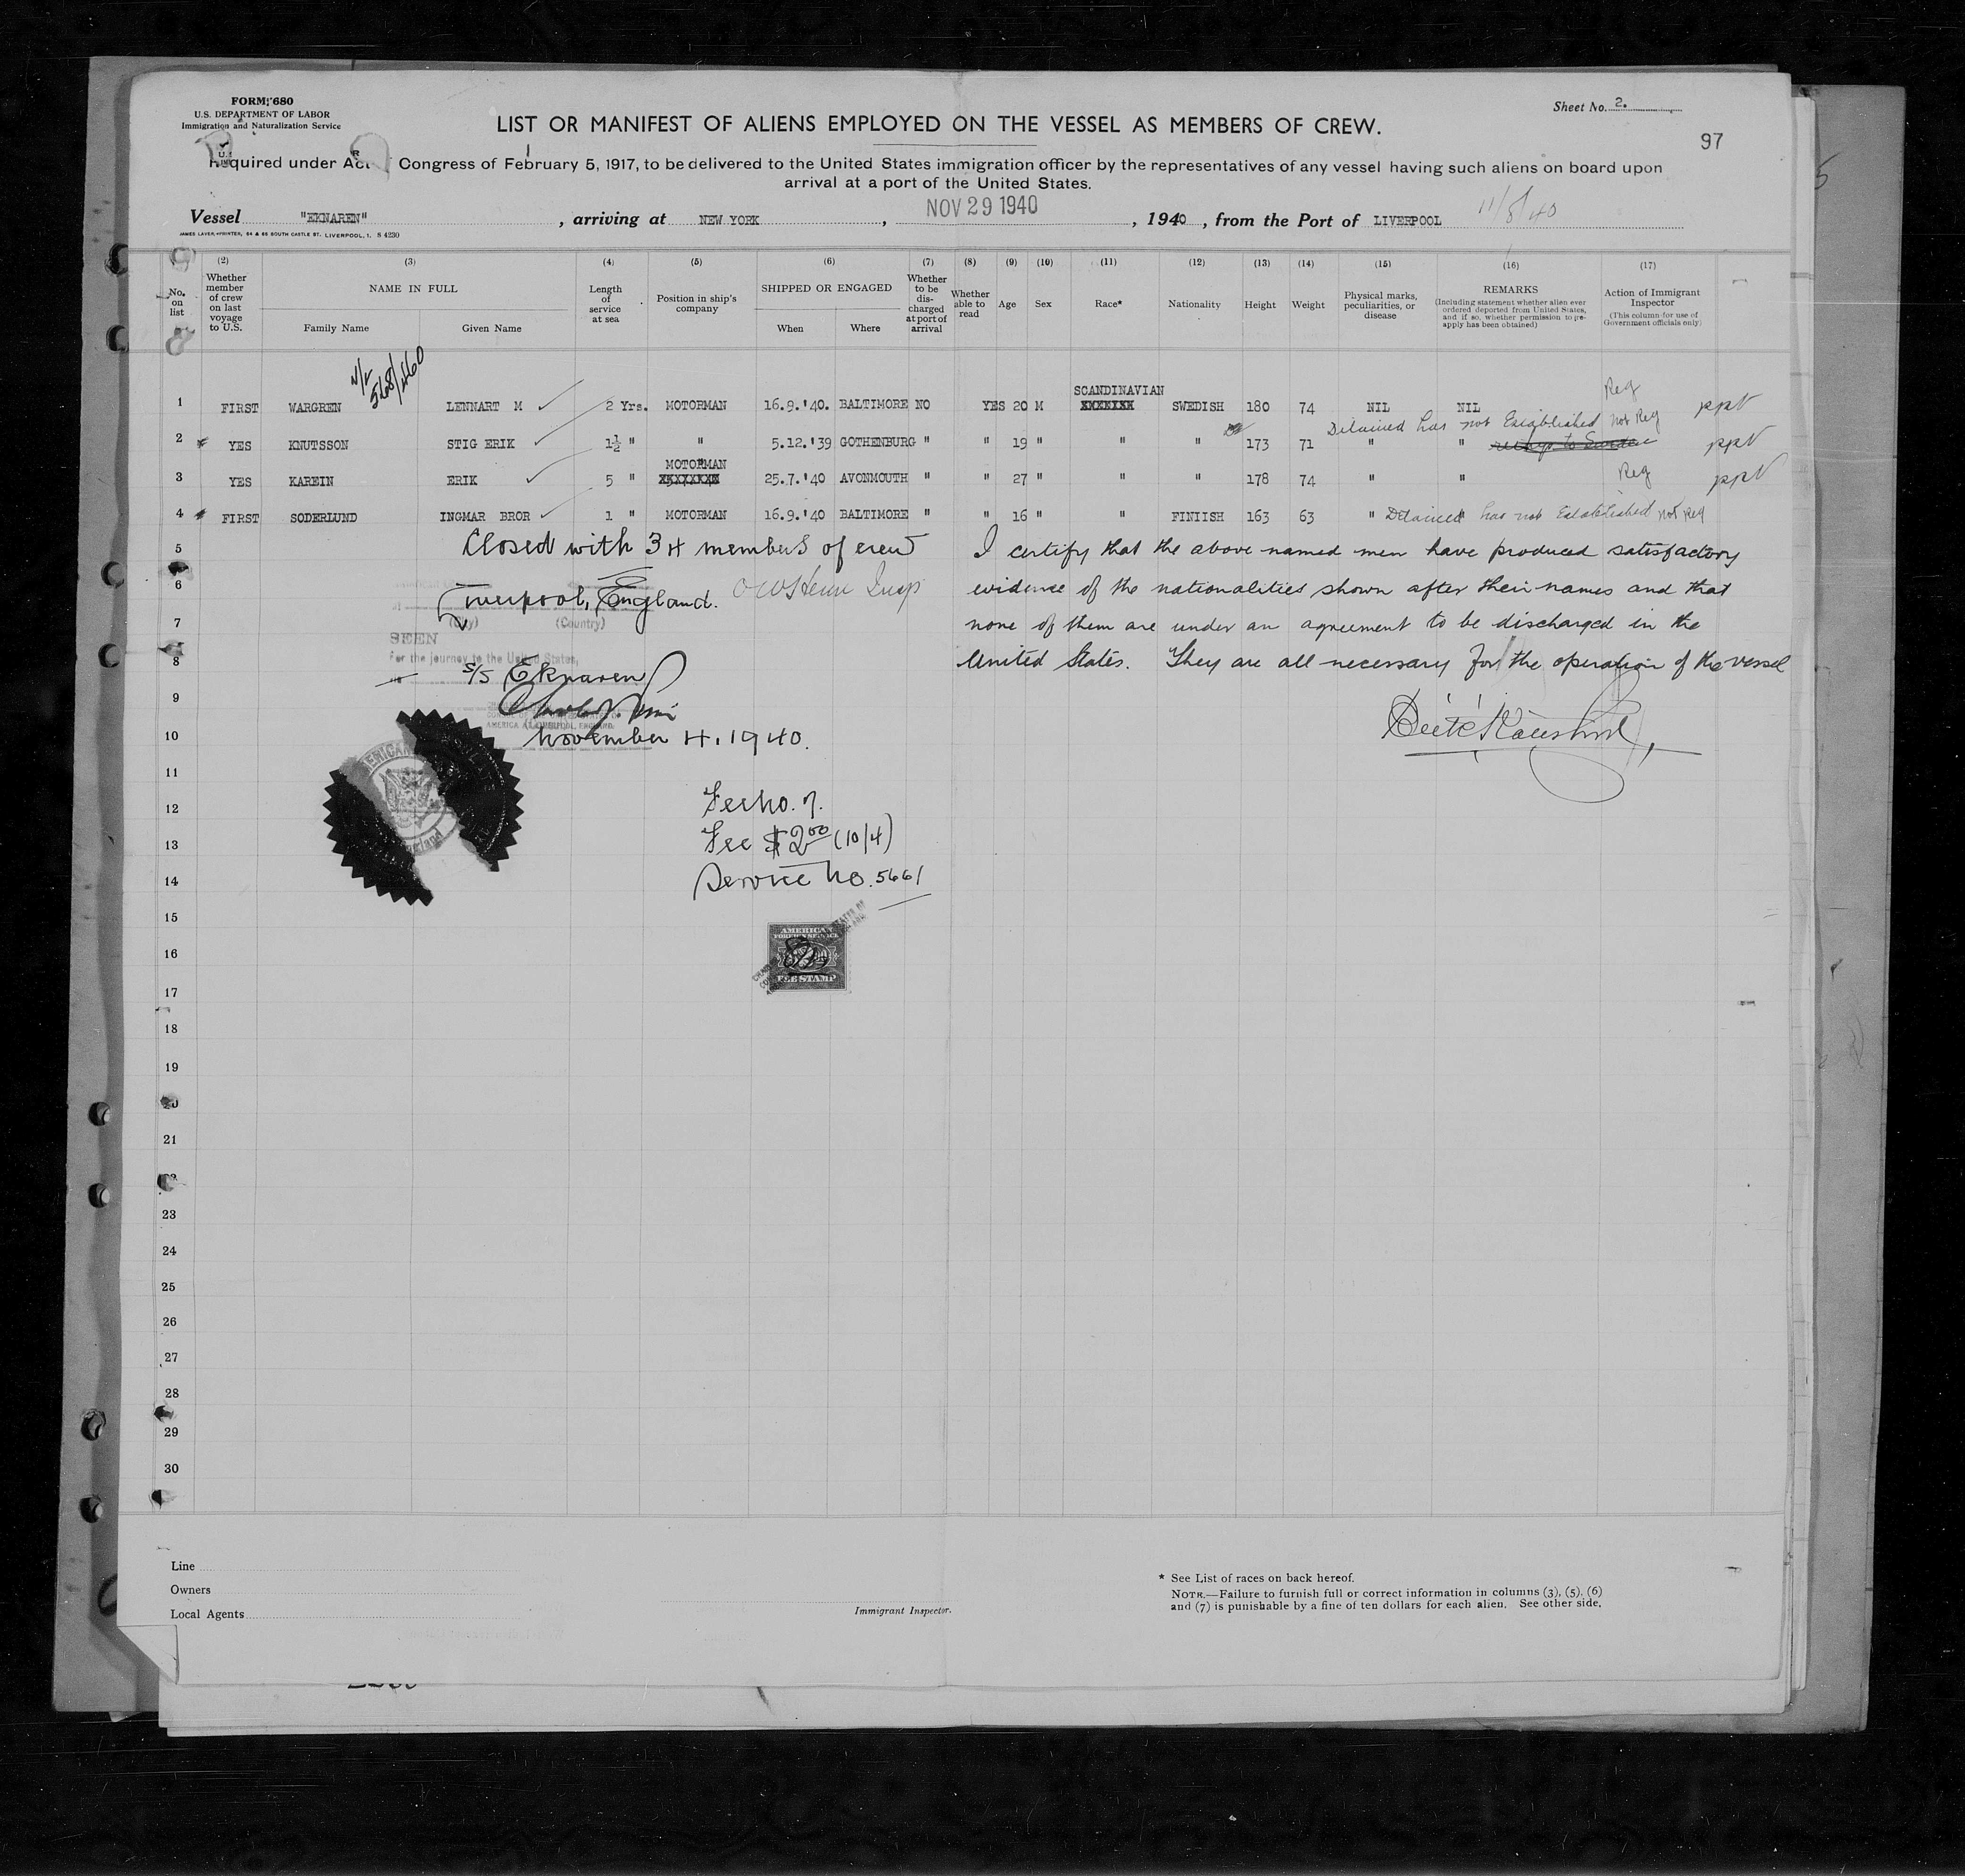 FORM 680
U.S. DEPARTMENT OF LABOR
Immigration and Naturalization Service
Sheet No. 2.
LIST OR MANIFEST OF ALIENS EMPLOYED ON THE VESSEL AS MEMBERS OF CREW.
97
Required under Act Congress of February 5, 1917, to be delivered to the United States immigration officer by the representatives of any vessel having such aliens on board upon
arrival at a port of the United States.
Vessel "EKNAREN", arriving at NEW YORK, NOV 29 1940, 1940, from the Port of LIVERPOOL 11/8/40
JAMES LAVER, PRINTER, 64 & 66 SOUTH CASTLE ST. LIVERPOOL, 1. S 4230
(2) (3) (4) (5) (6) (7) (8) (9) (10) (11) (12) (13) (14) (15) (16) (17)
No. on list
Whether member of crew on last voyage to U.S.
NAME IN FULL
Family Name
Given Name
Length of service at sea
Position in ship's company
SHIPPED OR ENGAGED
When
Where
Whether to be dis-charged at port of arrival
Whether able to read
Age
Sex
Race*
Nationality
Height
Weight
Physical marks, peculiarities, or disease
REMARKS
(Including statement whether alien ever ordered deported from United States, and if so, whether permission to re-apply has been obtained)
Action of Immigrant Inspector
(This column for use of Government officials only)
SCANDINAVIAN
Reg
1 FIRST WARGREN LENNART M 2 Yrs. MOTORMAN 16.9.'40. BALTIMORE NO YES 20 M XXXXIXX SWEDISH 180 74 NIL NIL ppt
Detained has not Established not Reg
2 YES KNUTSSON STIG ERIK 1½ " " 5.12.'39 GOTHENBURG " " 19 " " " 173 71 " " ppt
MOTORMAN
Reg
3 YES KAREIN ERIK 5 " XXXXXXXX 25.7.'40 AVONMOUTH " " 27 " " " 178 74 " " ppt
4 FIRST SODERLUND INGMAR BROR 1 " MOTORMAN 16.9.'40 BALTIMORE " " 16 " " FINIISH 163 63 " Detained " has not Established not Reg
5 Closed with 34 members of crew I certify that the above named men have produced satisfactory
6 Liverpool, England. evidence of the nationalities shown after their names and that
(City) (Country)
7 none of them are under an agreement to be discharged in the
SEEN
For the journey to the United States,
8 S/S Eknaren United States. They are all necessary for the operation of the vessel
9
AMERICA AT LIVERPOOL, ENGLAND
10 November 4, 1940.
11
12 Fee No. 7.
13 Fee $2.00 (10/4)
14 Service No. 5661
15
AMERICAN
FOREIGN SERVICE
16
FEE STAMP
17
18
19
20
21
22
23
24
25
26
27
28
29
30
Line
Owners
Local Agents
Immigrant Inspector.
* See List of races on back hereof.
NOTE.—Failure to furnish full or correct information in columns (3), (5), (6)
and (7) is punishable by a fine of ten dollars for each alien. See other side.